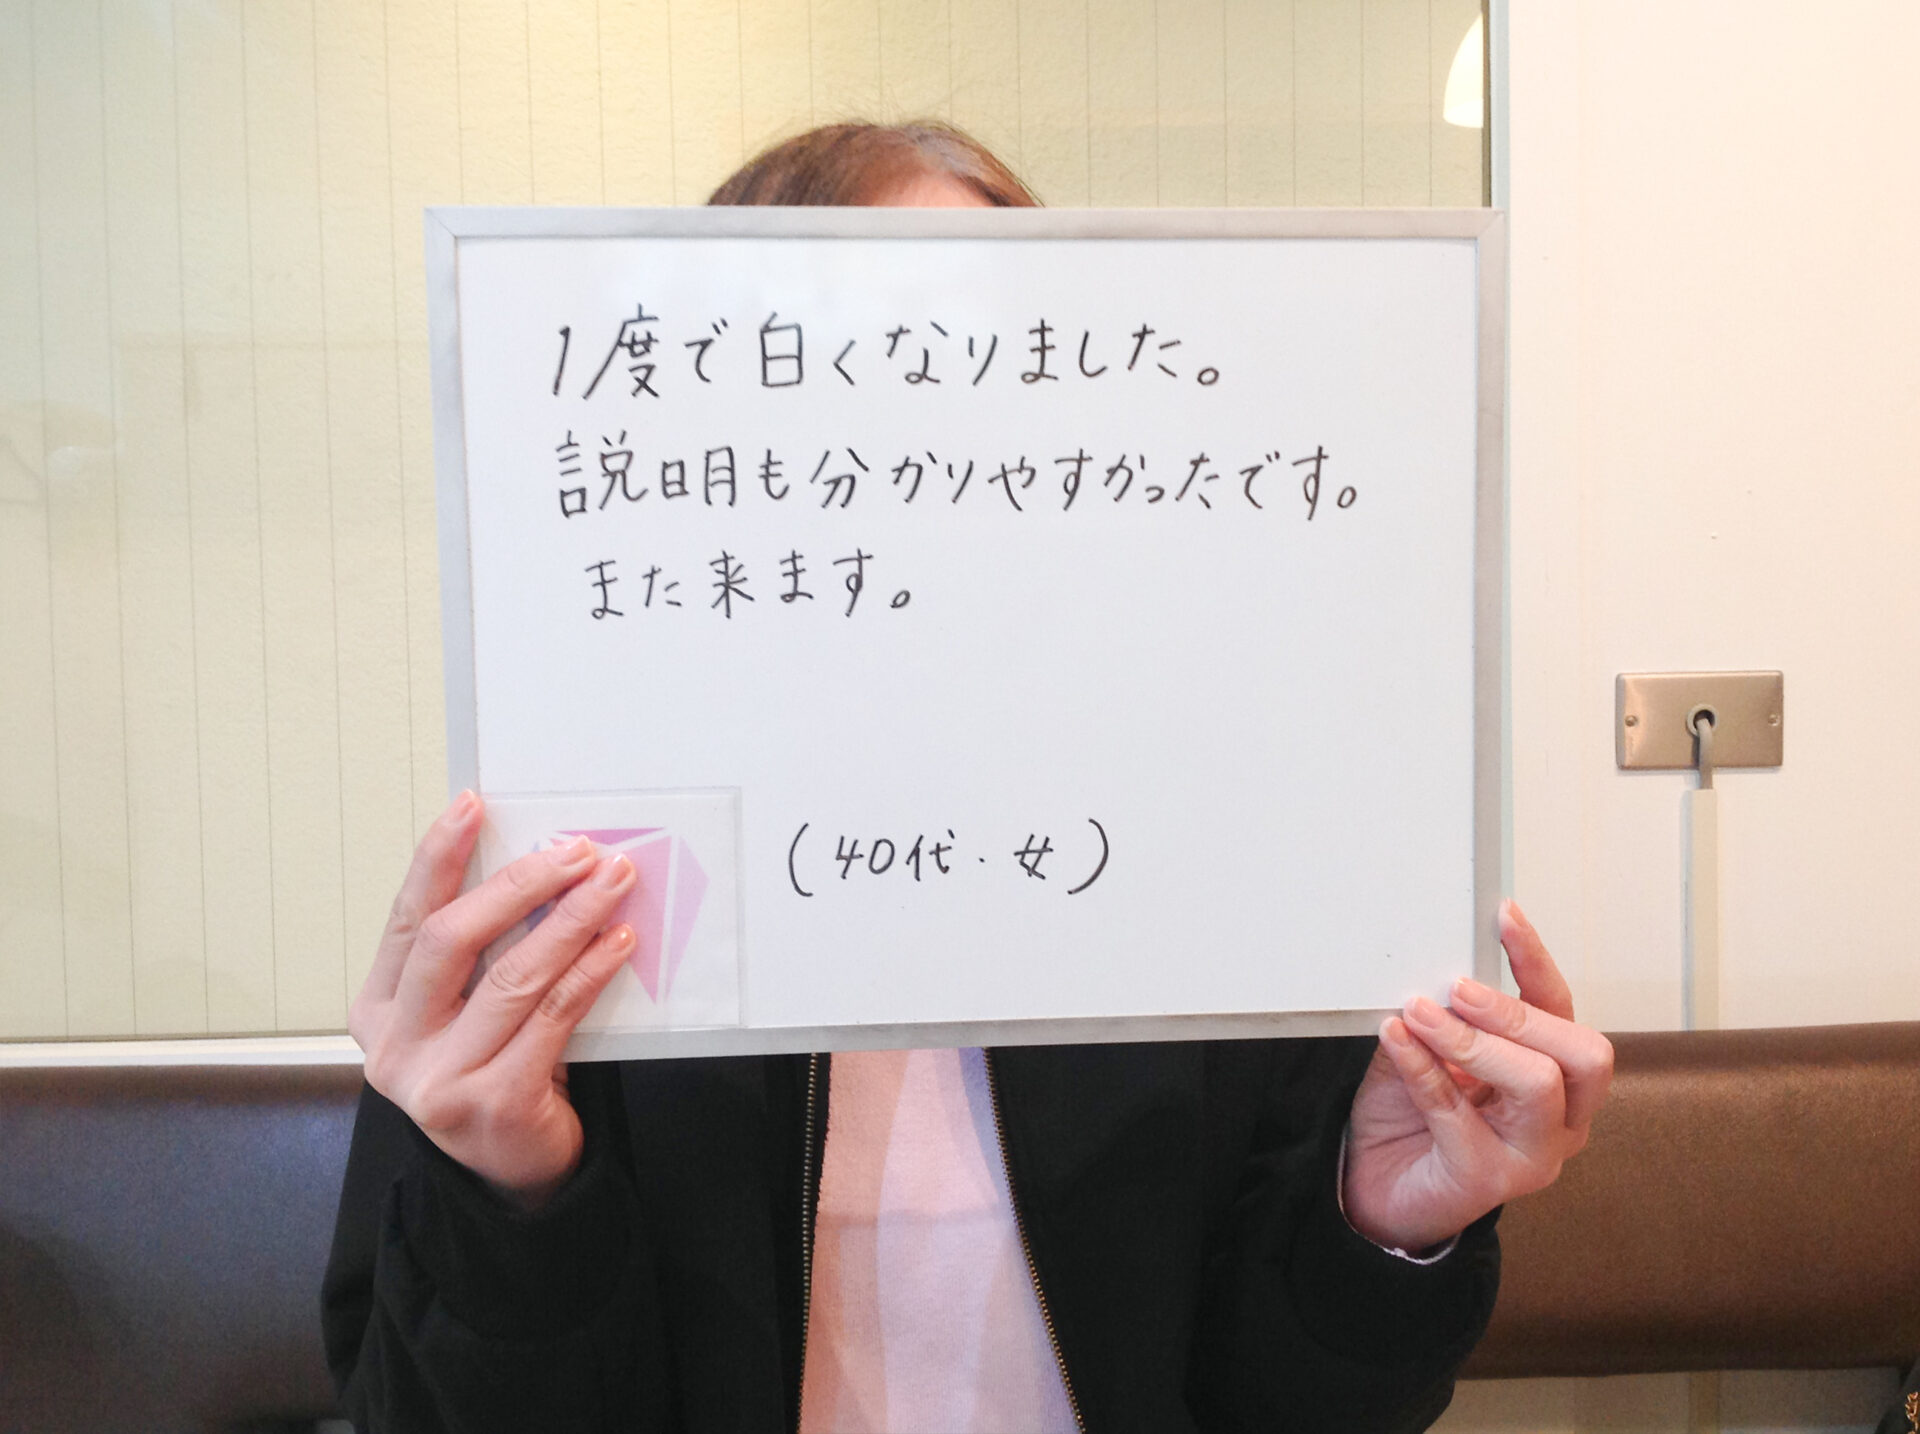 1度で白くなりました。
説明も分かりやすかったです。
また来ます。
(40代・女)